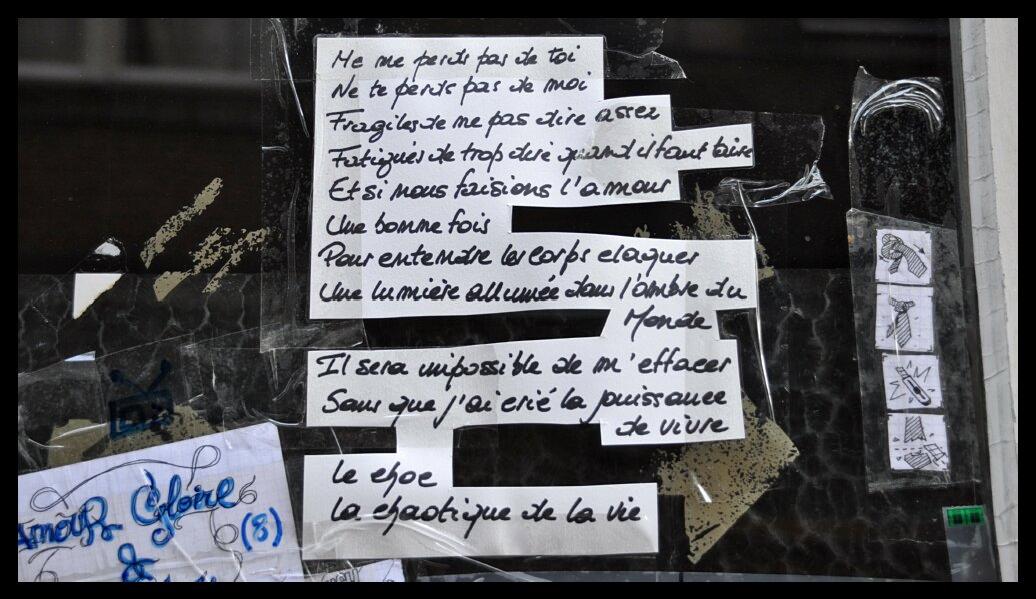 Me me perds pas de toi
Ne te perds pas de moi
Fragiles de me pas dire assez
Fatigués de trop dire quand il faut taire
Et si nous faisions l'amour
Une bonne fois
Pour entendre les corps claquer
Une lumière allumée dans l'ombre du
Monde
Il sera impossible de m'effacer
Sans que j'ai crié la puissance
de vivre
Le choc
La chaotique de la vie
Amour Gloire
(8)
&